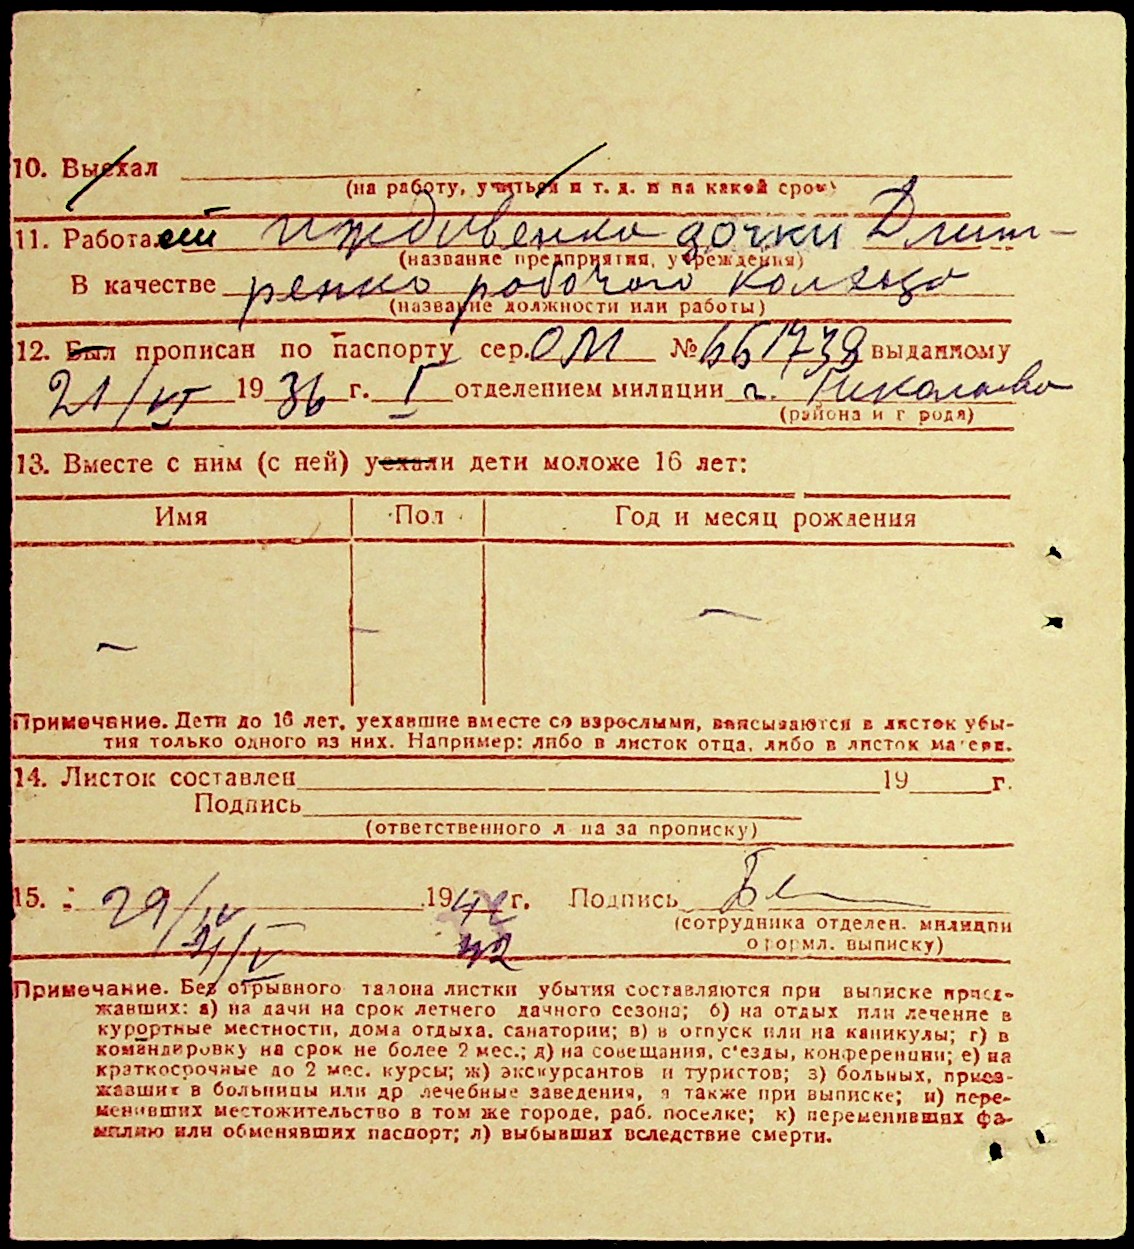 10. Выехал
(на работу, учиться и т. д. и на какой срок)
11. Работал иждивенка дочки Дмит-
(название предприятия, учреждения)
В качестве ренко рабочого
(название должности или работы)
12. Был прописан по паспорту сер. ОМ № 661738 выданному
21/VI 1936 г. I отделением милиции г. Николаева
(района и города)
13. Вместе с ним (с ней) уехали дети моложе 16 лет:
Имя Пол Год и месяц рождения
— — —
Примечание. Дети до 16 лет, уехавшие вместе со взрослыми, вписываются в листок убы-
тия только одного из них. Например: либо в листок отца, либо в листок матери.
14. Листок составлен 19 г.
Подпись
(ответственного лица за прописку)
15. 29/IV 1942 г. Подпись
(сотрудника отделен. милиции
4/V 42 оформл. выписку)
Примечание. Без отрывного талона листки убытия составляются при выписке приез-
жавших: а) на дачи на срок летнего дачного сезона; б) на отдых или лечение в
курортные местности, дома отдыха, санатории; в) в отпуск или на каникулы; г) в
командировку на срок не более 2 мес.; д) на совещания, с'езды, конференции; е) на
краткосрочные до 2 мес. курсы; ж) экскурсантов и туристов; з) больных, приез-
жавших в больницы или др лечебные заведения, а также при выписке; и) пере-
менивших местожительство в том же городе, раб. поселке; к) переменивших фа-
милию или обменявших паспорт; л) выбывших вследствие смерти.